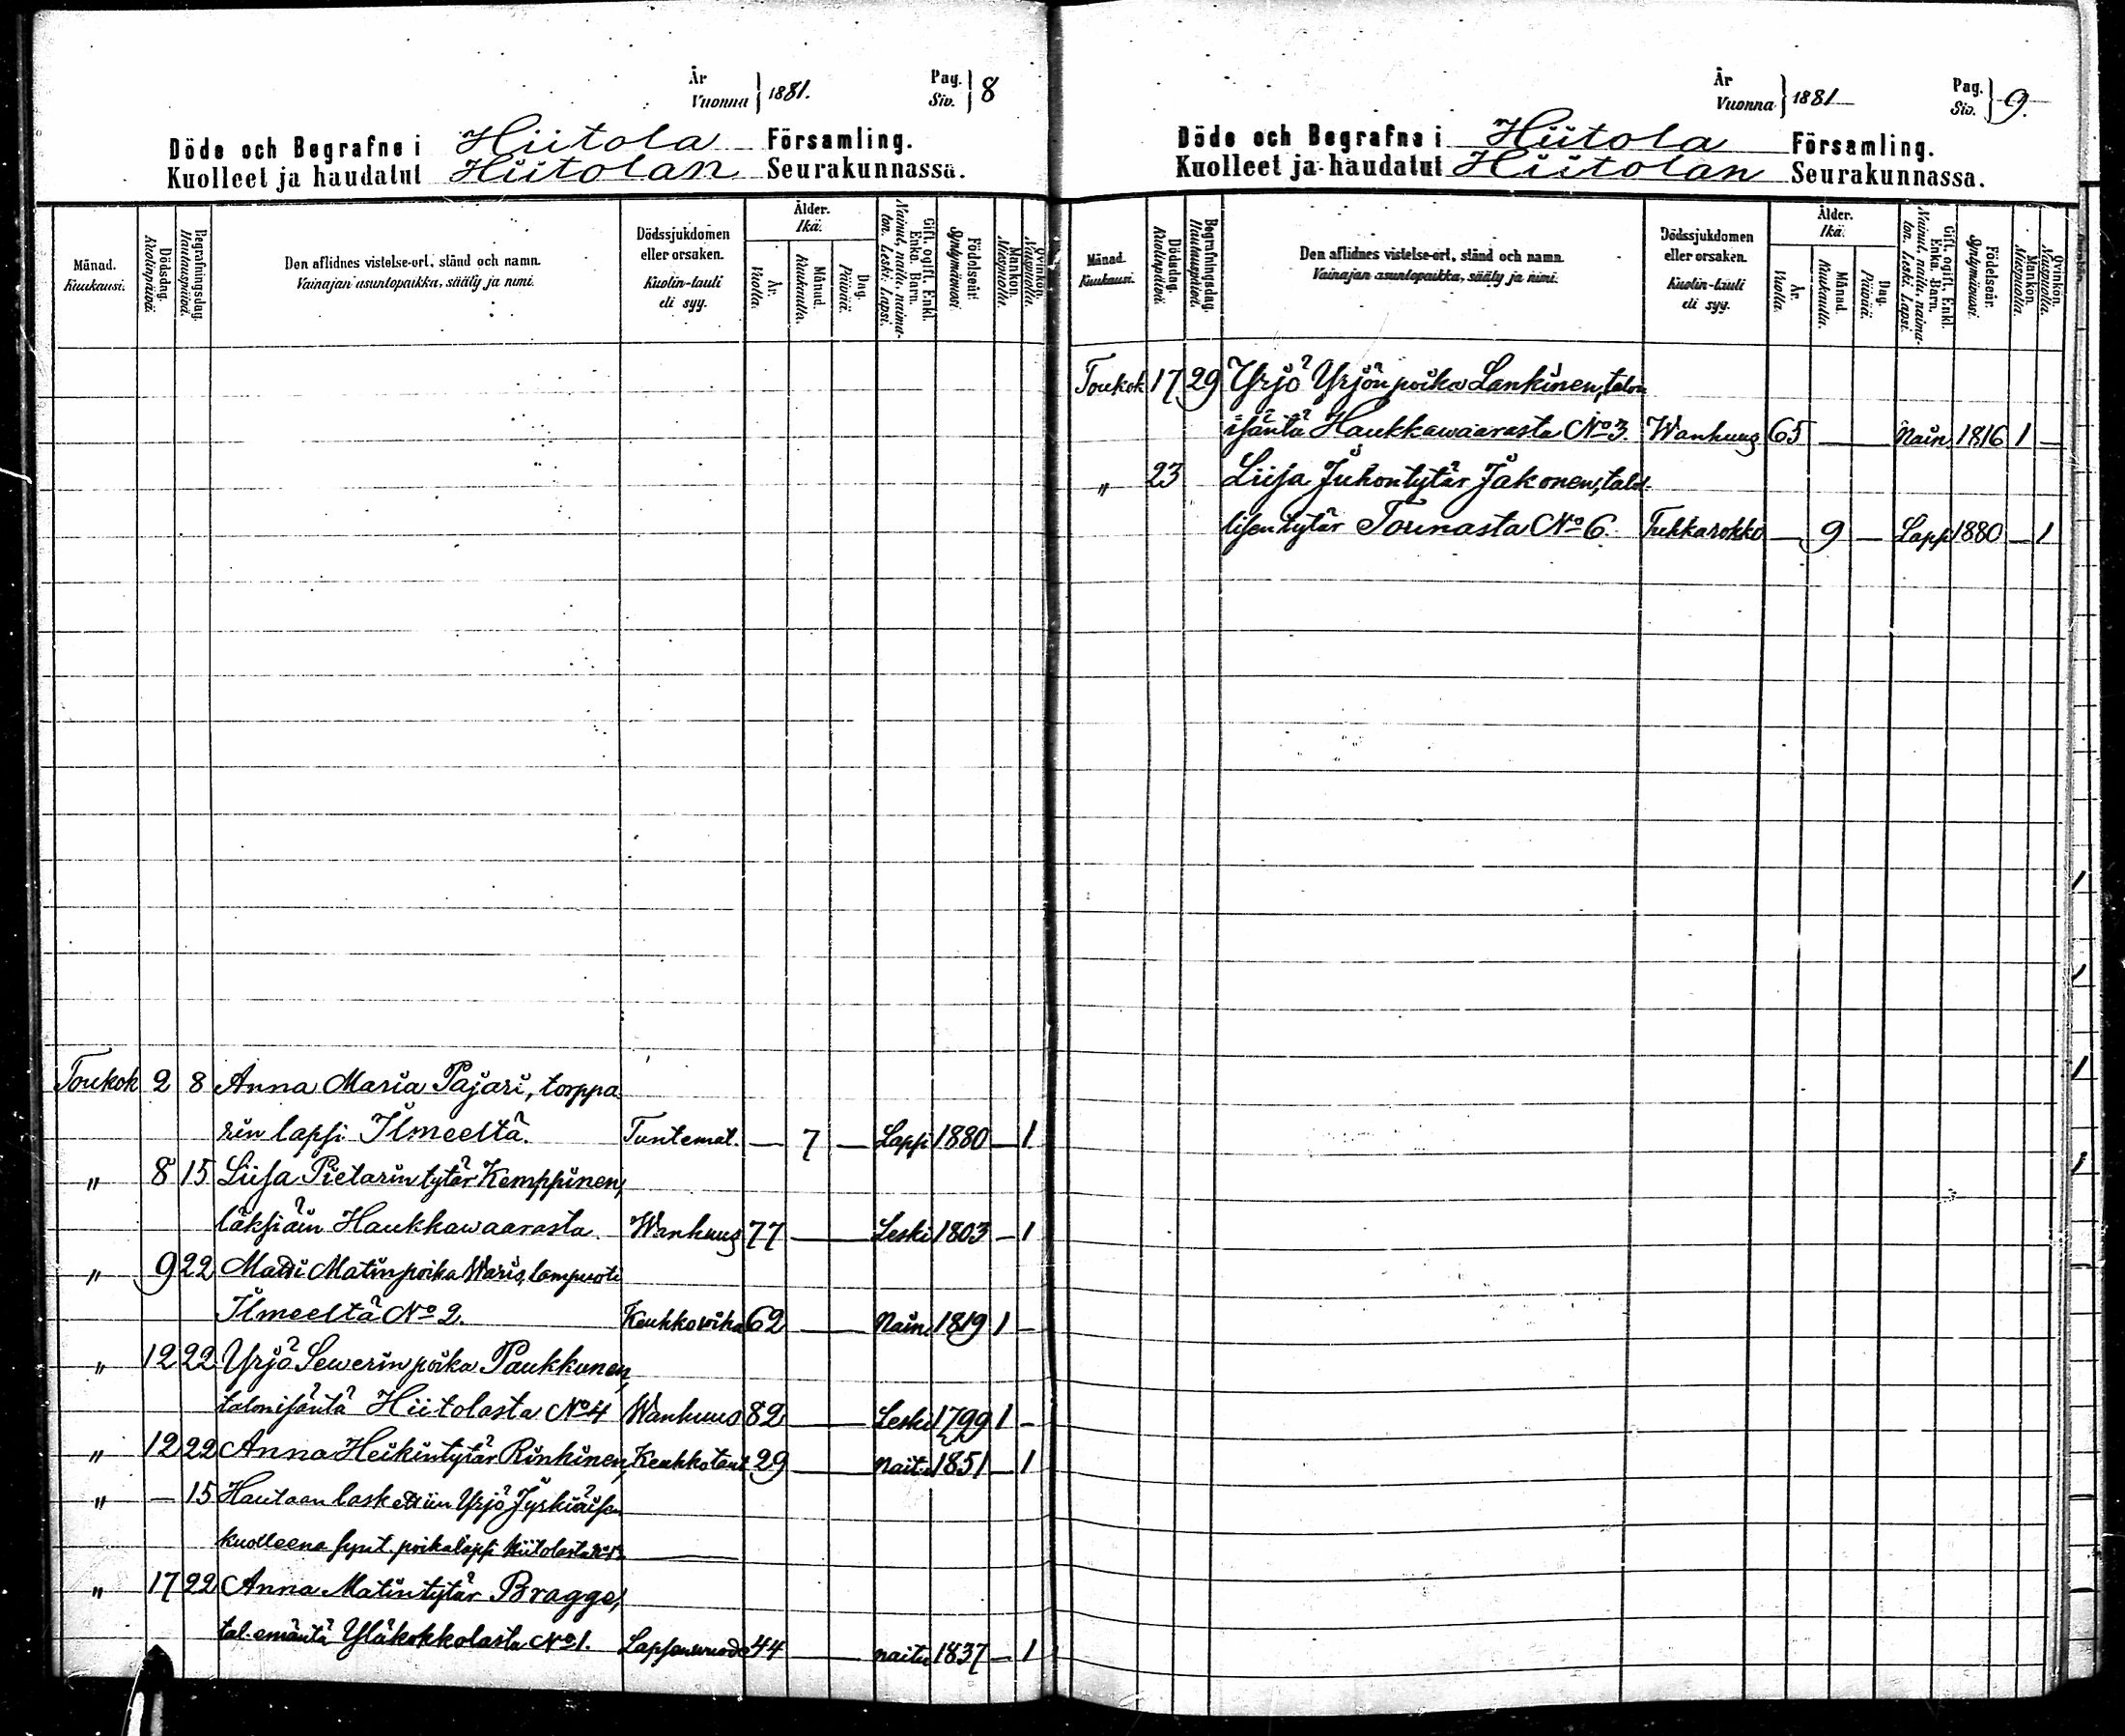 År Vuonna 1881. Pag. Siv. 8
Döde och Begrafne i Hiitola Församling.
Kuolleet ja haudatut Hiitolan Seurakunnassa.
Månad. Kuukausi.
Dödsdag. Kuolinpäivä.
Begrafningsdag. Hautauspäivä.
Den aflidnes vistelse-ort, stånd och namn.
Vainajan asuntopaikka, sääty ja nimi.
Dödssjukdomen eller orsaken.
Kuolin-tauti eli syy.
Ålder. Ikä.
År. Vuotta.
Månad. Kuukautta.
Dag. Päivää.
Gift, ogift, Enkl. Enka. Barn.
Nainut, naitu, naimaton. Leski. Lapsi.
Födelseår. Syntymävuosi.
Mankön. Miespuolta.
Qvinkön. Vaimopuolta.
Toukok 2 8 Anna Maria Pajari, torppa
rin lapsi Ilmeeltä. Tuntemat. — 7 — Lapsi 1880 — 1
" 8 15 Liisa Pietarintytär Kemppinen,
läksiäin Haukkawaarasta. Wanhuus 77 — Leski 1803 — 1
" 9 22 Matti Matinpoika Waris, lampuoti
Ilmeeltä No 2. Keuhkowiha 62 — Nain. 1819 1 —
" 12 22 Yrjö Sewerinpoika Paukkunen,
talonisäntä Hiitolasta No 4 Wanhuus 82 — Leski 1799 1 —
" 12 22 Anna Heikintytär Rinkinen, Keuhkotaut 29 — Nait. 1851 — 1
" — 15 Hautaan laskettiin Yrjö Jyskiäisen
kuolleena synt. poikalapsi Hiitolasta —
" 17 22 Anna Matintytär Bragge,
tal. emäntä Yläkokkolasta No 1. Lapsenwuode 44 — naitu 1837 — 1
År Vuonna 1881 Pag. Siv. 9.
Döde och Begrafne i Hiitola Församling.
Kuolleet ja haudatut Hiitolan Seurakunnassa.
Månad. Kuukausi.
Dödsdag. Kuolinpäivä.
Begrafningsdag. Hautauspäivä.
Den aflidnes vistelse-ort, stånd och namn.
Vainajan asuntopaikka, sääty ja nimi.
Dödssjukdomen eller orsaken.
Kuolin-tauti eli syy.
Ålder. Ikä.
År. Vuotta.
Månad. Kuukautta.
Dag. Päivää.
Gift, ogift, Enkl. Enka. Barn.
Nainut, naitu, naimaton. Leski. Lapsi.
Födelseår. Syntymävuosi.
Mankön. Miespuolta.
Qvinkön. Vaimopuolta.
Toukok 17 29 Yrjö Yrjönpoika Lankinen, talon
isäntä Haukkawaarasta No 3. Wanhuus 65 — Nain. 1816 1 —
" 23 Liisa Juhontytär Jäkonen, talol
lisen tytär Tounasta No 6. Tuhkarokko — 9 — Laps 1880 — 1